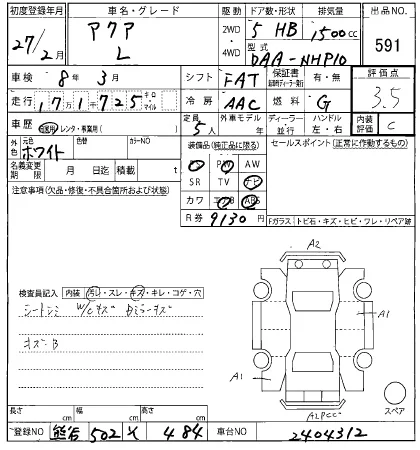 初度登録年月 車名・グレード 駆動 ドア数・形状 排気量 出品NO.
27/2月 アクア L 2WD・4WD 5 HB 1500cc 591
型式 DAA-NHP10
車検 8年3月 シフト FAT 保証書 有・無 評価点 3.5
走行 1万1千725 キロ・マイル 冷房 AAC 燃料 G
車歴 自家用 レンタ・事業用( ) 定員 5人 外車モデル 年 ディーラー・並行 ハンドル 左・右 内装評価 C
外色 元色 ホワイト 色替 カラーNO 装備品(純正品に限る) セールスポイント(正常に作動するもの)
PS PW AW
名義変更期限 月 日迄 積載 t SR TV ナビ
注意事項(欠品・修復・不具合箇所および状態) カワ エアB ABS
R券 9130円
Fガラス トビ石・キズ・ヒビ・ワレ・リペア跡
A2
検査員記入 内装 汚レ・スレ・キズ・キレ・コゲ・穴
シートシミ W/Cキズ Dミラーキズ
A1
キズB
A1
スペア
A1PCC
長さ cm 幅 cm 高さ cm
登録NO 熊谷 502 メ 484 車台NO 2404312